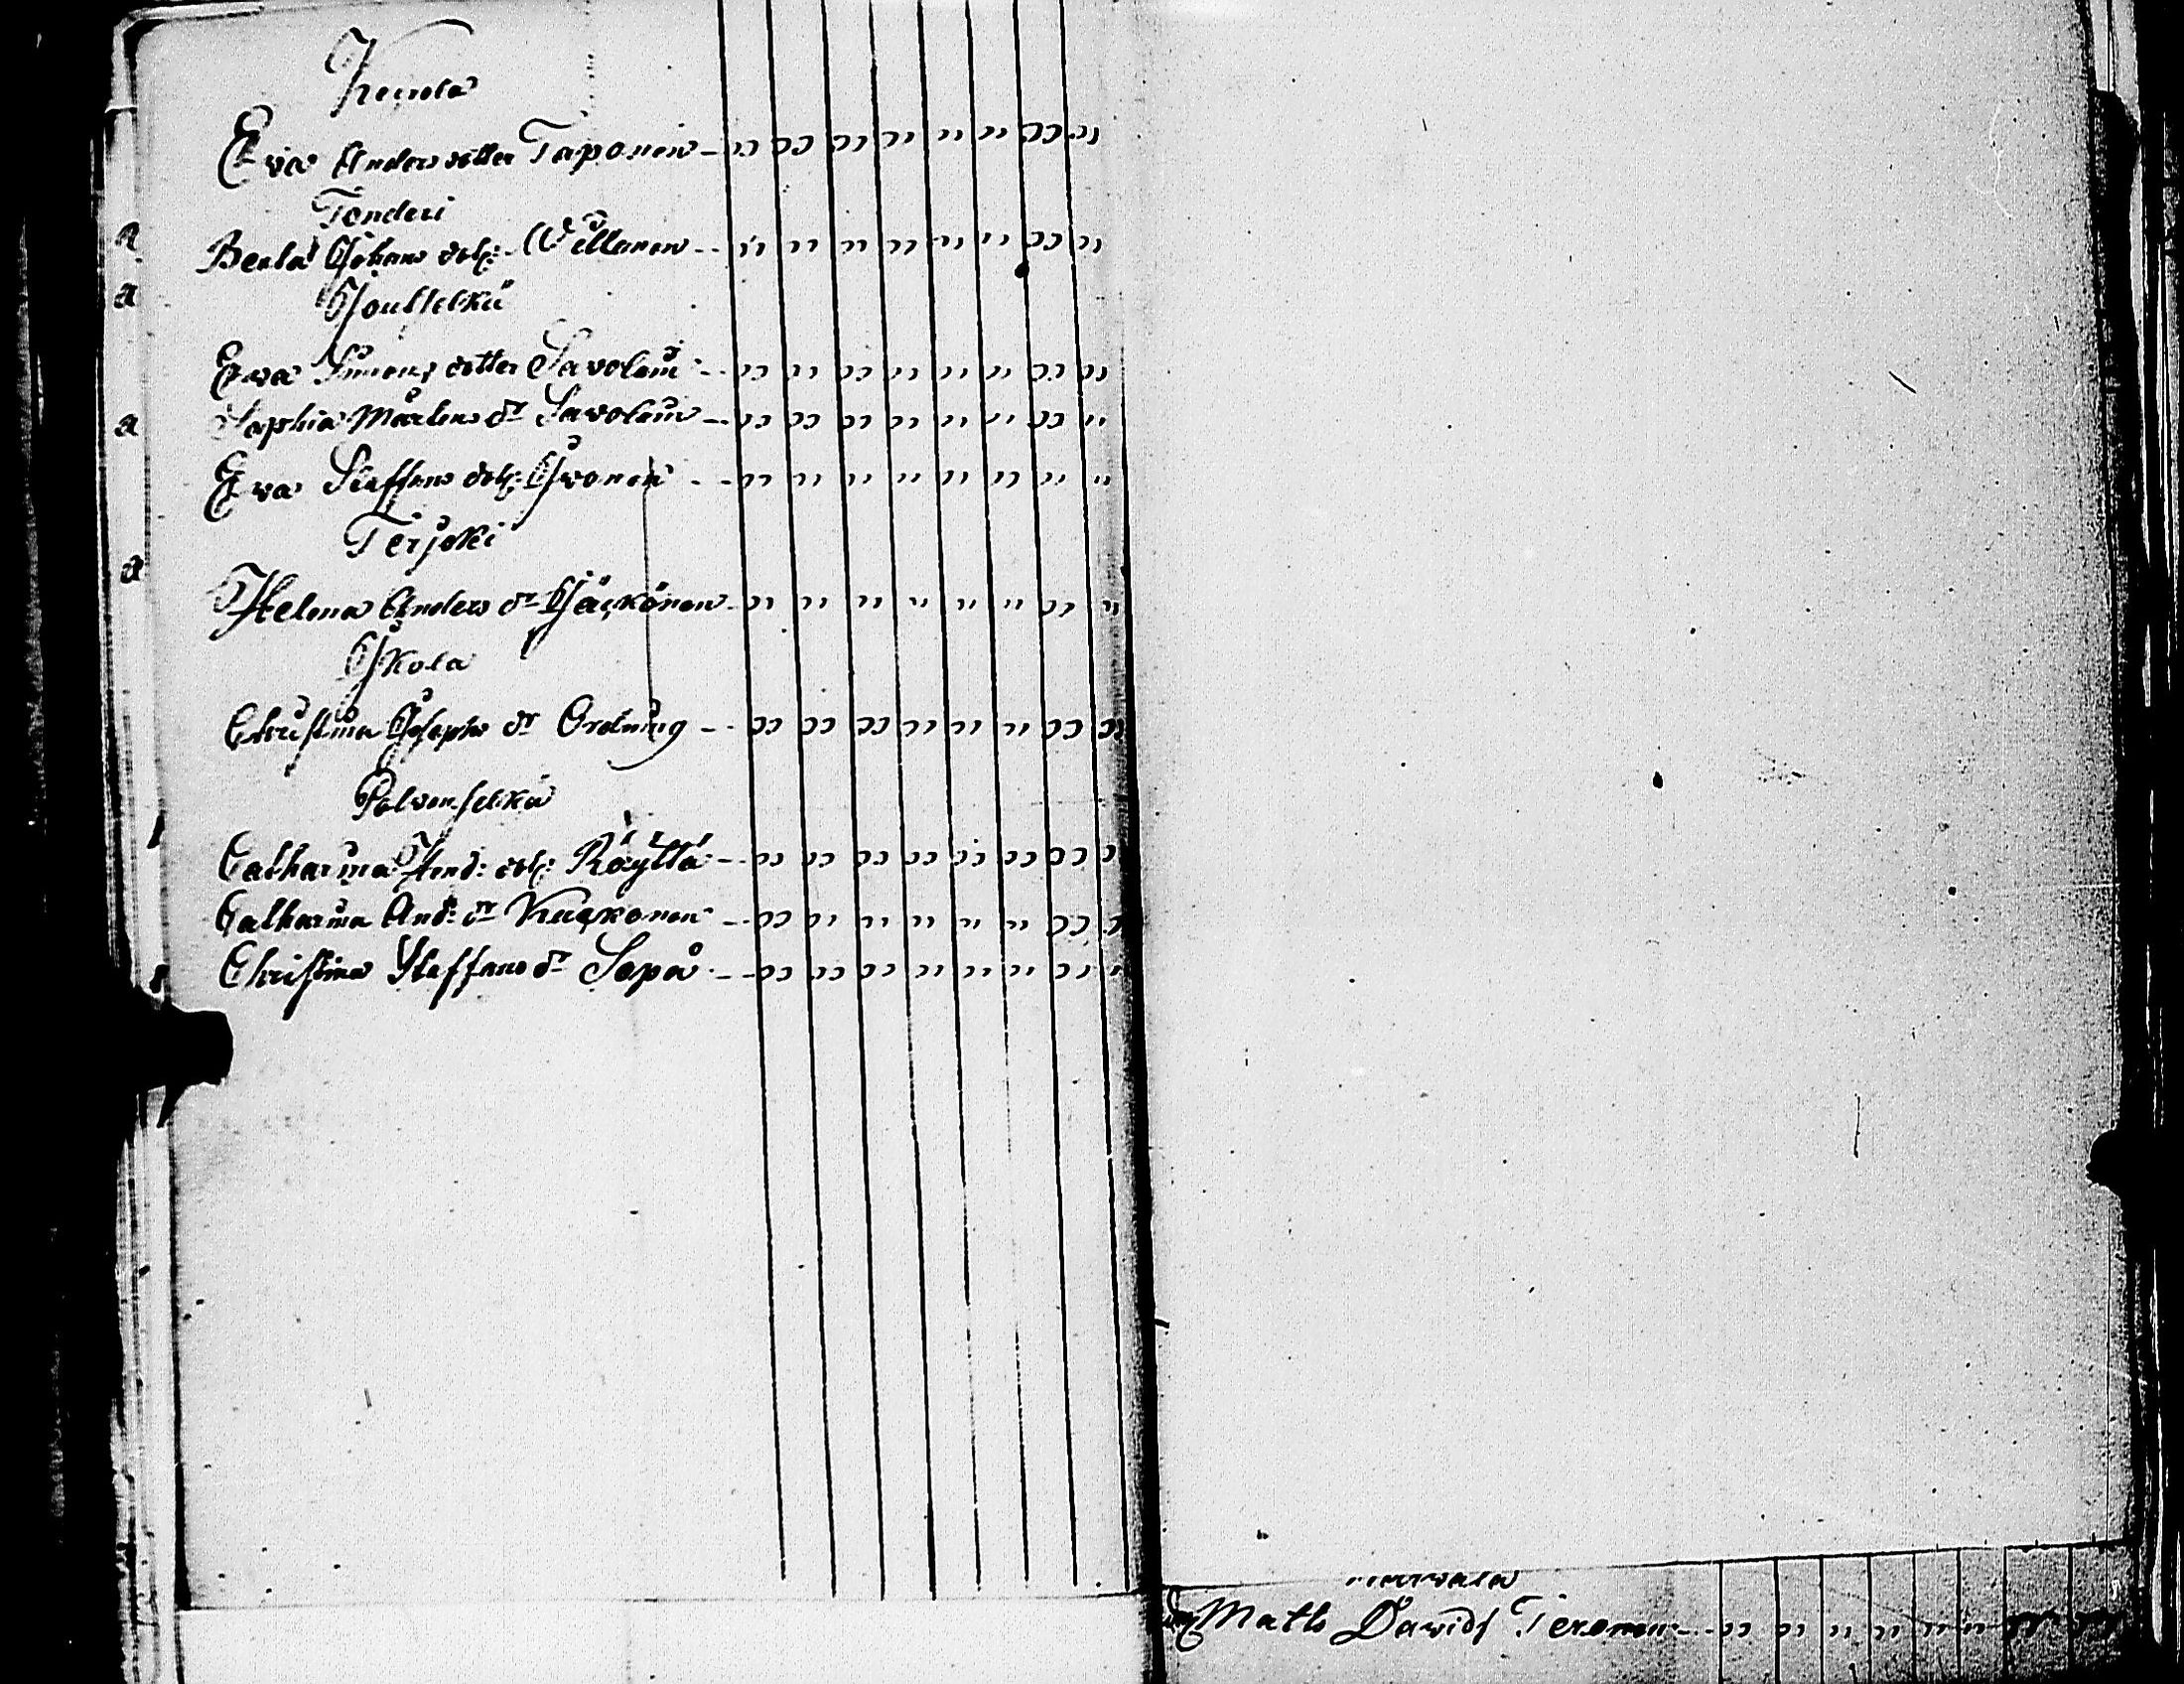 Kuuola
Eva Anders dotter Taponen - " " " " " " " "
Tonderi
Beata Johans dott: Willanen - - " " " " " " " "
Joutselkä
Ewa Simons dotter Savolain - - " " " " " " " "
Sophia Mårtens dr Savolain - - " " " " " " " "
Ewa Staffans dott: Iwonen - - " " " " " " " "
Terjoki
Helena Anders dr Jäckönen - " " " " " " " "
Ikola
Christina Josephs dr Ordning - - " " " " " " " "
Polvenselkä
Catharina Hend: dott: Räyttä - - " " " " " " " "
Catharina And: dr Kuckonen - - " " " " " " " "
Christina Staffans dr Sopa - - " " " " " " " "
a
a
a
a
Maths Davids Teronen - - " " " " " "